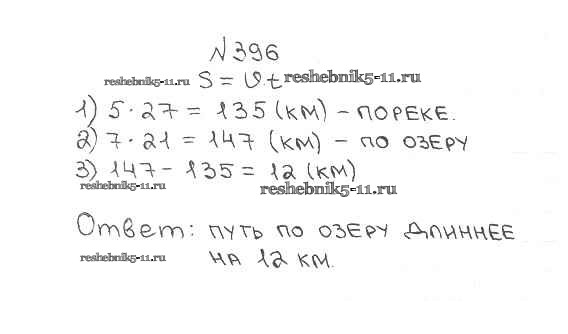 №396
reshebnik5-11.ru S = v·t reshebnik5-11.ru
1) 5·27 = 135 (км) – ПОРЕКЕ.
2) 7·21 = 147 (км) – ПО ОЗЕРУ
3) 147 – 135 = 12 (км)
reshebnik5-11.ru reshebnik5-11.ru
Ответ: ПУТЬ ПО ОЗЕРУ ДЛИННЕЕ
reshebnik5-11.ru НА 12 КМ.